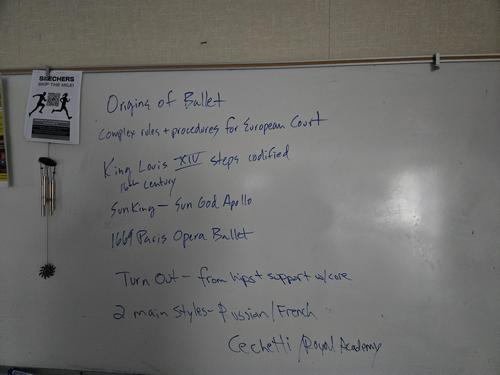 BEECHERS
SKIP THE MILE!
Origins of Ballet
Complex rules + procedures for European Court
King Louis XIV steps codified
16th century
Sun King - Sun God Apollo
1669 Paris Opera Ballet
Turn Out - from hips + support w/core
2 main styles - Russian/French
Cechetti /Royal Academy